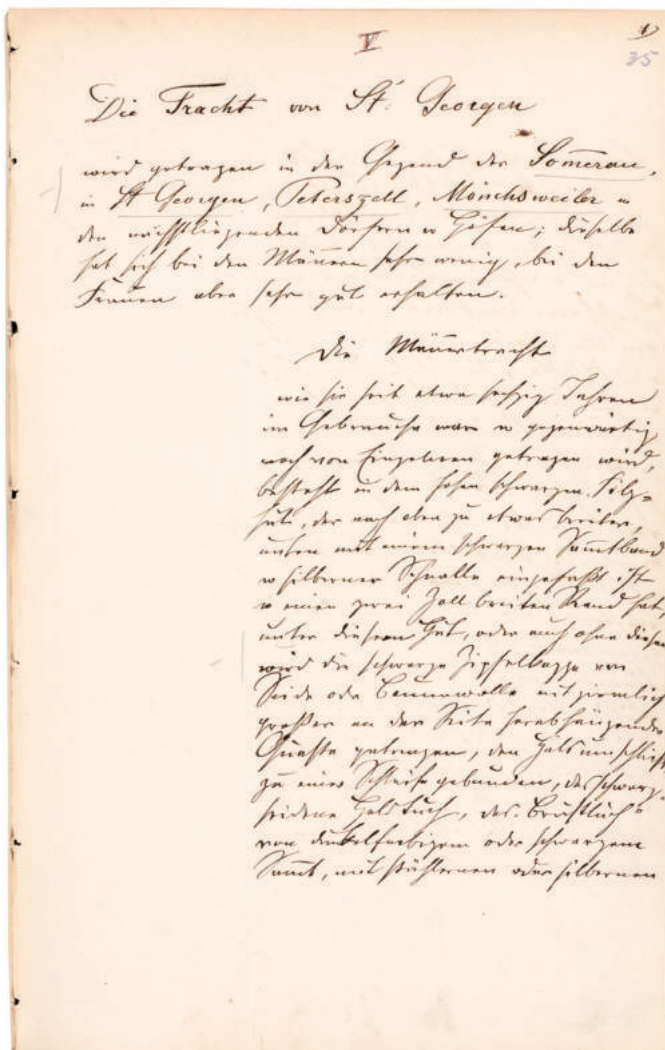 V
1)
35
Die Tracht von St. Georgen
wird getragen in der Gegend der Som̅erau,
in St Georgen, Peterszell, Mönchsweiler u
den nächstliegenden Dörfern u Höfen; dieselbe
hat sich bei den Män̅ern sehr wenig, bei den
Frauen aber sehr gut erhalten.
Die Män̅ertracht
wie sie seit etwa sechzig Jahren
im Gebrauche war u gegenwärtig
noch von Einzelnen getragen wird,
besteht in dem hohen schwarzen Filz=
hute, der nach oben zu etwas breiter,
unten mit einem schwarzen Sam̅tband
u silberner Schnalle eingefaßt ist
u einen zwei Zoll breiten Rand hat,
unter diesem Hut, oder auch ohne diesen
wird die schwarze Zipfelkappe von
Seide oder Baumwolle mit ziemlich
großer an der Seite herabhängender
Quaste getragen, den Hals umschließt
zu einer Schleife gebunden, das schwarz=
seidene Halstuch, das "Brusttuch"
von dunkelfarbigem oder schwarzem
Sam̅t, mit stählernen oder silbernen